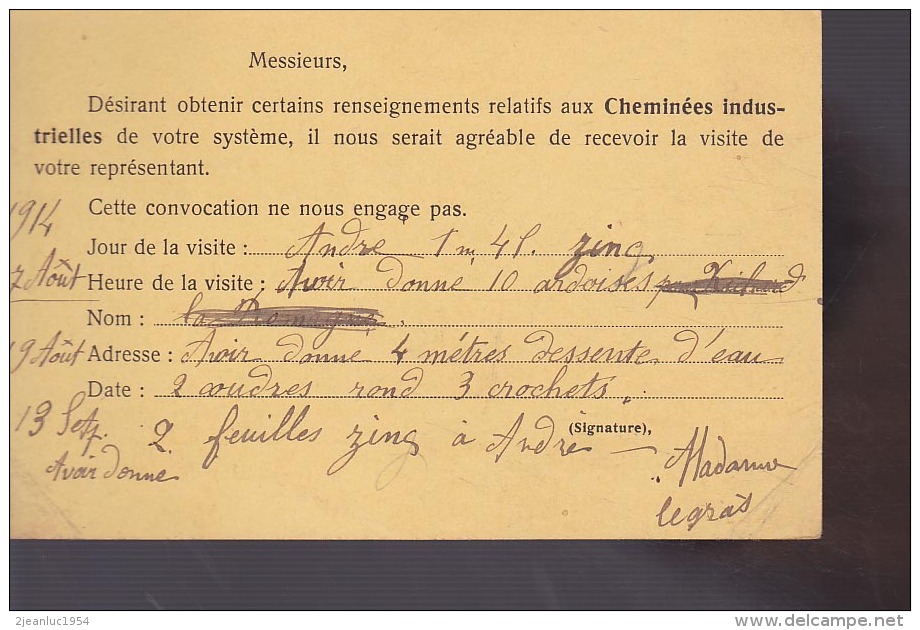 Messieurs,
Désirant obtenir certains renseignements relatifs aux Cheminées indus-
trielles de votre système, il nous serait agréable de recevoir la visite de
votre représentant.
1914 Cette convocation ne nous engage pas.
Jour de la visite : André 1 m 41. zing
7 Août Heure de la visite : Avoir donné 10 ardoises
Nom : la Romagne
19 Août Adresse : Avoir donne 4 métres dessente d'eau
Date : 2 coudres rond 3 crochets.
13 Sep. 2 feuilles zing à André (Signature),
Avoir donne Madame
legras
2jeanluc1954
delcampe.net